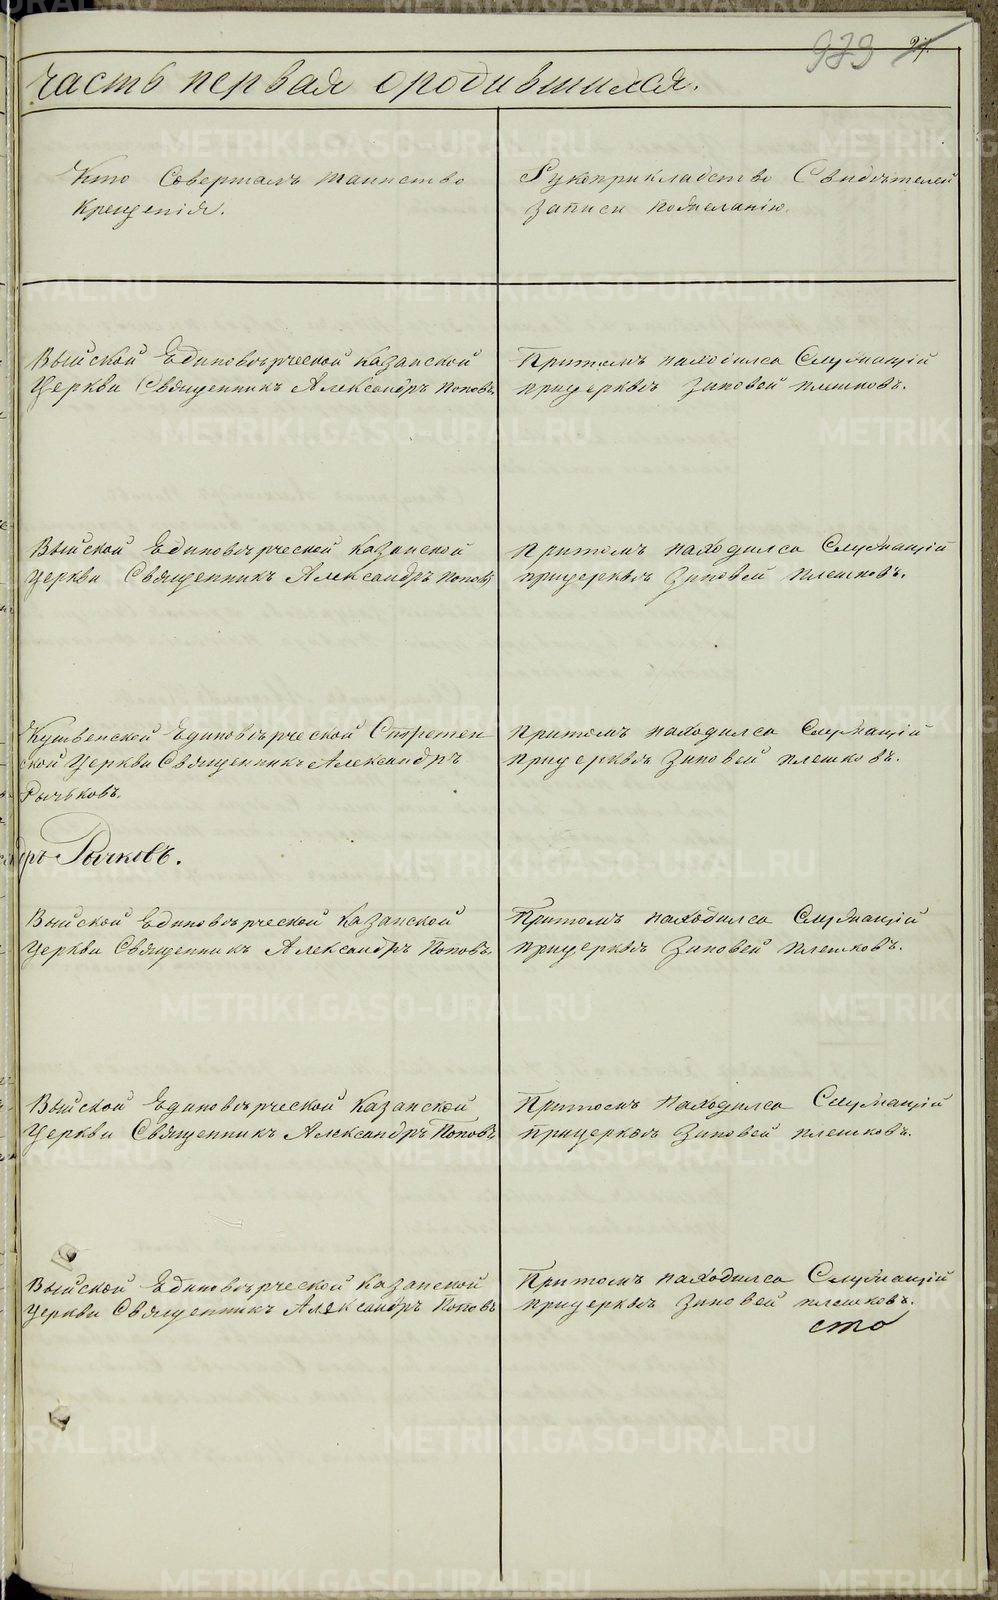 939 21.
часть первая о родившихся.
Кто Совершалъ таинство
Крещенія.
Рукоприкладство Свидѣтелей
записи пожеланію.
Выйской Единовѣрческой Казанской
Церкви Священникъ Александръ Поповъ
Притомъ находился Служащій
прицерквѣ Зиновей Плешковъ.
Выйской Единовѣрческой Казанской
Церкви Священникъ Александръ Поповъ
Притомъ находился Служащій
прицерквѣ Зиновей Плешковъ.
Кушвенской Единовѣрческой Стретен
ской Церкви Священникъ Александръ
Рычьковъ.
Притомъ находился Служащій
прицерквѣ Зиновей Плешковъ.
дръ Рычковъ.
Выйской Единовѣрческой Казанской
Церкви Священникъ Александръ Поповъ.
Притомъ находился Служащій
прицерквѣ Зиновей Плешковъ.
Выйской Единовѣрческой Казанской
Церкви Священникъ Александръ Поповъ
Притомъ находился Служащій
прицерквѣ Зиновей Плешковъ.
Выйской Единовѣрческой Казанской
Церкви Священникъ Александръ Поповъ
Притомъ находился Служащій
прицерквѣ Зиновей Плешковъ.
сто
METRIKI.GASO-URAL.RU